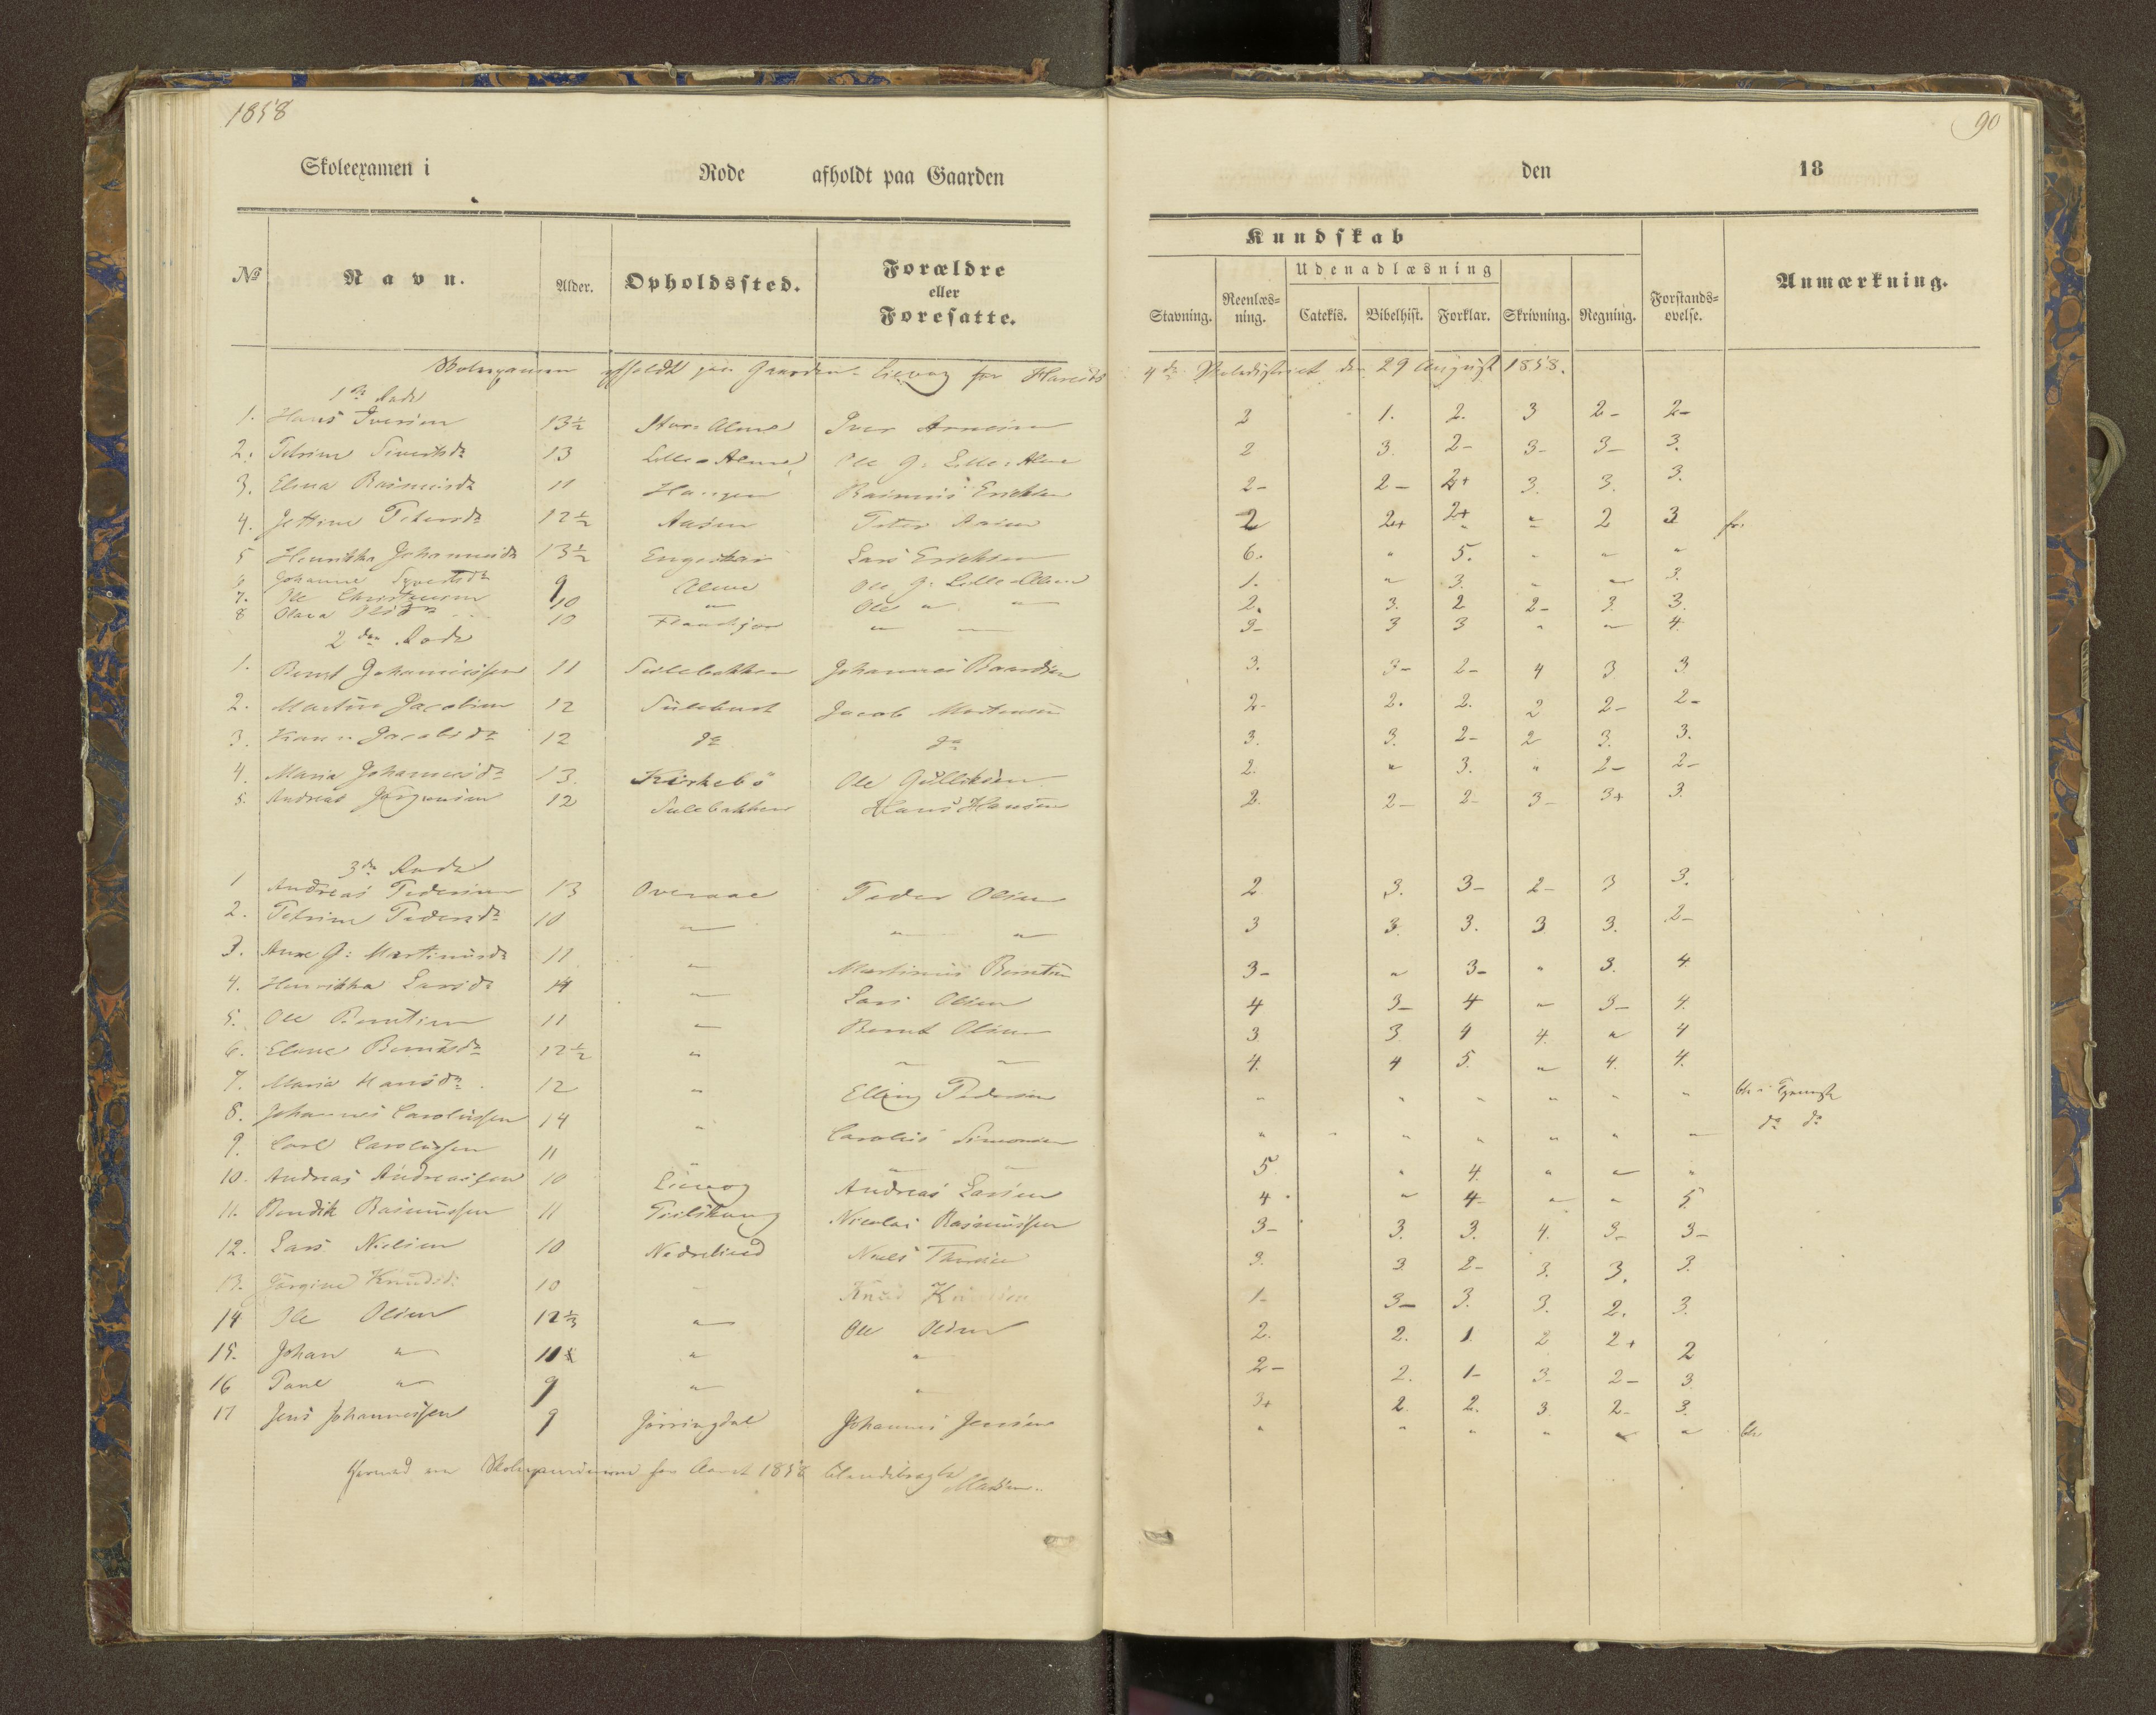 1858
90
Skoleexamen i Rode afholdt paa Gaarden den 18
Kundskab
Udenadlæsning
No Navn. Alder. Opholdssted. Forældre eller Foresatte. Stavning. Reenlæs-ning. Catekis. Bibelhist. Forklar. Skrivning. Regning. Forstands-øvelse. Anmærkning.
Skolexamen afholdt paa Gaarden Liavog for Hareids 4de Skoledistrict den 29 August 1858.
1ste Rode
1. Hans Iversen 13½ Store Alme Iver Arnesen 2 1. 2. 3 2- 2-
2. Petrine Sivertsdr 13 Lille-Alme Ole J: Lille-Alme 2 3. 2- 3- 3- 3.
3. Elena Rasmusdr 11 Haugen Rasmus Erichsen 2- 2- 2+ 3. 3. 3.
4. Jettine Petersdr 12½ Aasen Peter Aasen 2 2+ 2+ " 2 3 fr.
5 Henrikka Johannesdr 13½ Lars Erichsen 6. " 5. " " "
6 Johanne Syvertsdr 9 Alme Ole J: Lille-Alme 1. " 3. " " 3.
7. Ole Christensen 10 " Ole " " 2. 3. 2 2- 3. 3.
8 Olava Olsdr 10 " " 3- 3 3 " " 4.
2den Rode
1. Bernt Johannessen 11 Sulebakken Johannes Baardsen 3. 3- 2- 4 3 3
2. Martin Jacobsen 12 Jacob Mortensen 2- 2. 2. 2 2- 2-
3. Jacobsdr 12 do do 3. 3. 2- 2 3. 3.
4. Maria Johannesdr 13. Kirkebö Ole Gulliksen 2. " 3. " 2- 2-
5. Andreas Jörgensen 12 Sulebakken Hans Hansen 2. 2- 2- 3- 3+ 3.
3die Rode
1 Andreas Pedersen 13 Overaae Peder Olsen 2 3. 3- 2- 3 3.
2. Petrine Pedersdr 10 " " " 3 3. 3. 3 3. 2-
3. Ane J: Martinusdr 11 " Martinus Berntsen 3- " 3- " 3. 4
4. Henrikka Larsdr 14 " Lars Olsen 4 3- 4 " 3- 4.
5. Ole Berntsen 11 " Bernt Olsen 3 3 4 4. " 4
6. Elene Berntsdr 12½ " " " 4. 4 5. " 4. 4.
7. Maria Hansdr. 12 " Elling Pedersen " " " " " "
8. Johannes Carolussen 14 " Carolus Simonsen " " " " " " do do
9. Carl Carolussen 11 " " 5. " 4. " " "
10. Andreas Andreassen 10 Liavog Andreas Larsen 4 " 4- " " 5.
11. Bendik Rasmussen 11 Nicolai Rasmussen 3- 3. 3. 4. 3- 3-
12. Lars Nielsen 10 Nedrelied Niels 3. 3 2- 3. 3. 3.
13. Jörgine Knudsdr 10 " Knud Knudsen 1- 3- 3. 3. 2. 3.
14 Ole Olsen 12½ " Ole Olsen 2. 2. 1. 2 2+ 2
15. Johan " 11 " " 2- 2. 1- 3- 2- 3
16 Paul " 9 " " 3+ 2. 2. 3 2- 3.
17 Jens Johannessen 9 Jörringdal Johannes Jensen " " " " " "
for Aaret 1858
Madsen.